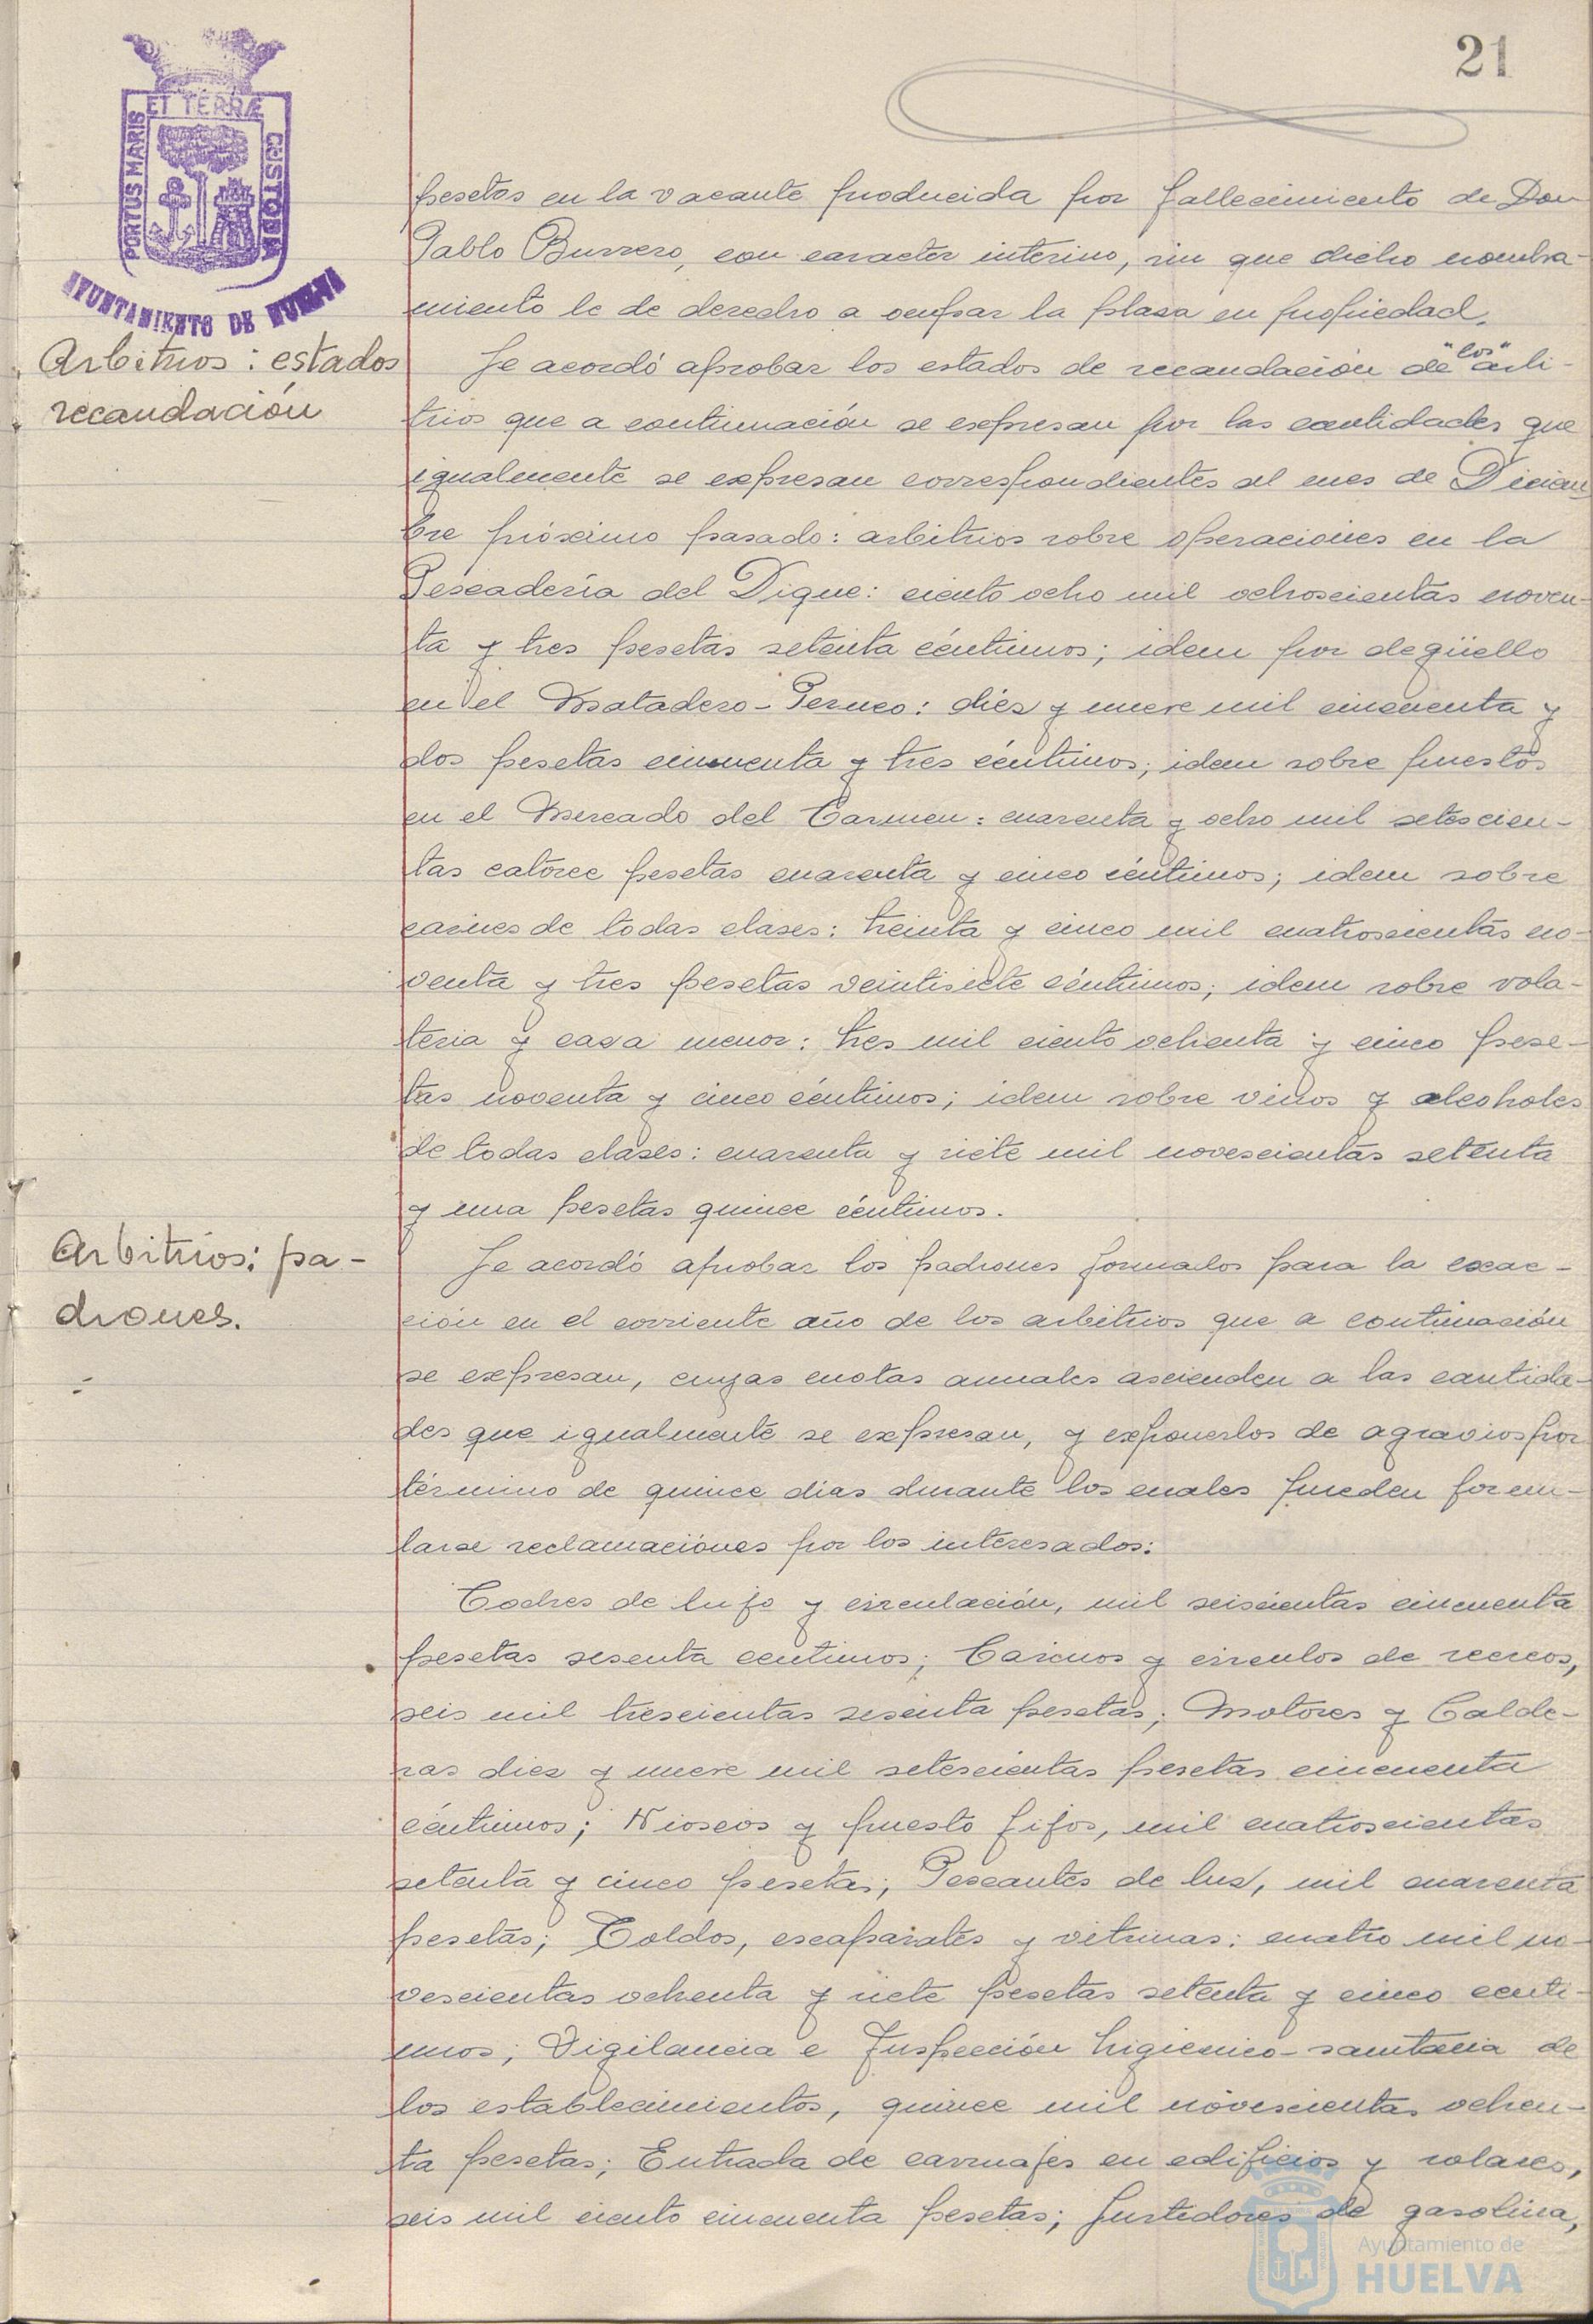 21
PORTUS MARIS ET TERRÆ CUSTODIA
AYUNTAMIENTO DE HUELVA
pesetas en la vacante producida por fallecimiento de Don
Pablo Burrero, con caracter interino, sin que dicho nombra-
miento le de derecho a ocupar la plaza en propiedad.
Arbitrios: estados
recaudación
Se acordó aprobar los estados de recaudación de "los" arbi-
trios que a continuación se expresan por las cantidades que
igualmente se expresan correspondientes al mes de Diciem-
bre próximo pasado: arbitrios sobre operaciones en la
Pescadería del Dique: ciento ocho mil ochoscientas noven-
ta y tres pesetas setenta céntimos; idem por degüello
en el Matadero-Perneo: diez y nueve mil cincuenta y
dos pesetas cincuenta y tres céntimos; idem sobre puestos
en el Mercado del Carmen: cuarenta y ocho mil setescien-
tas catorce pesetas cuarenta y cinco céntimos; idem sobre
carnes de todas clases: treinta y cinco mil cuatroscientas no-
venta y tres pesetas veintisiete céntimos; idem sobre vola-
teria y caza menor: tres mil ciento ochenta y cinco pese-
tas noventa y cinco céntimos; idem sobre vinos y alcoholes
de todas clases: cuarenta y siete mil novescientas setenta
y una pesetas quince céntimos.
Arbitrios: pa-
drones.
Se acordó aprobar los padrones formados para la exac-
ción en el corriente año de los arbitrios que a continuación
se expresan, cuyas cuotas anuales ascienden a las cantida-
des que igualmente se expresan, y exponerlos de agravios por
término de quince dias durante los cuales pueden formu-
larse reclamaciones por los interesados:
Coches de lujo y circulación, mil seiscientas cincuenta
pesetas sesenta centimos; Casinos y circulos de recreos,
seis mil trescientas sesenta pesetas; Motores y Calde-
ras diez y nueve mil setescientas pesetas cincuenta
céntimos; Kioscos y puesto fijos, mil cuatroscientas
setenta y cinco pesetas; Pescantes de luz, mil cuarenta
pesetas; Toldos, escaparates y vitrinas: cuatro mil no-
vescientas ochenta y siete pesetas setenta y cinco centi-
mos; Vigilancia e Inspección higienico-sanitaria de
los establecimientos, quince mil novescientas ochen-
ta pesetas; Entrada de carruajes en edificios y solares,
seis mil ciento cincuenta pesetas; Surtidores de gasolina,
Ayuntamiento de
HUELVA